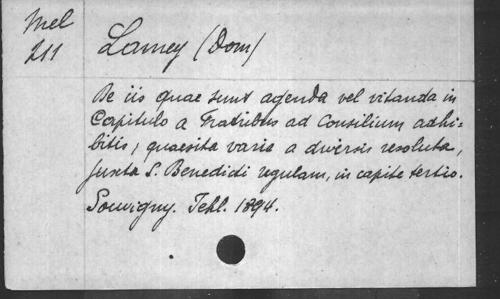 Mel
211
Lamey (Dom)
De iis quae sunt agenda vel vitanda in
Capitulo a Fratribus ad Consilium adhi-
bitis, quaesita varia a diversis resoluta,
juxta S. Benedidi regulam, in capite tertio.
Souvigny. Jehl. 1894.